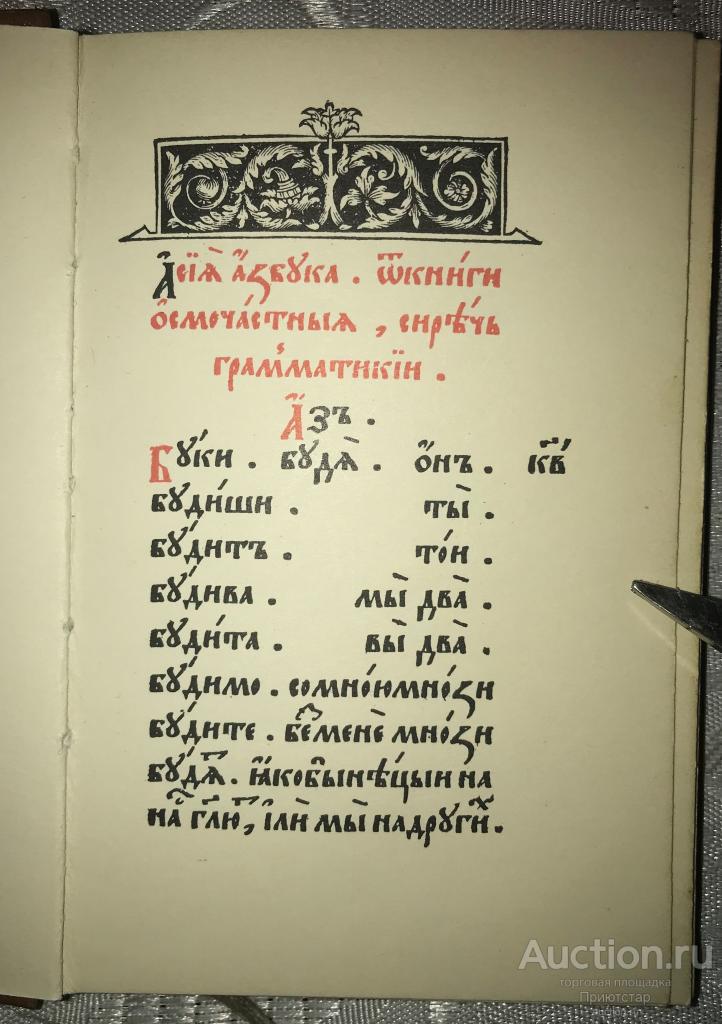 А҆сїѧ̀ а҆́збꙋка . ѿкни́ги
о҆смоча́стныꙗ , сирѣ́чь
грамⷨматикїи .
А҆́зъ .
Бꙋ́ки . бꙋдѧ̀ . ѻ҆́нъ . к҃в
бꙋди́ши . ты̀ .
бꙋ́дитъ . то́и .
бꙋ́дива . мы̀ два̀ .
бꙋди́та . вы̀ два̀ .
бꙋ́димо . сомно́юмно́ѕи
бꙋ́дите . беменѐ мно́ѕи
бꙋ́дѧⷮ . ꙗ҆ковы̀нѣцыи на
на̀ гл҃юⷮ , і҆лѝ мы̀ надрꙋгиⷯ .
Auction.ru
торговая площадка
Приютстар